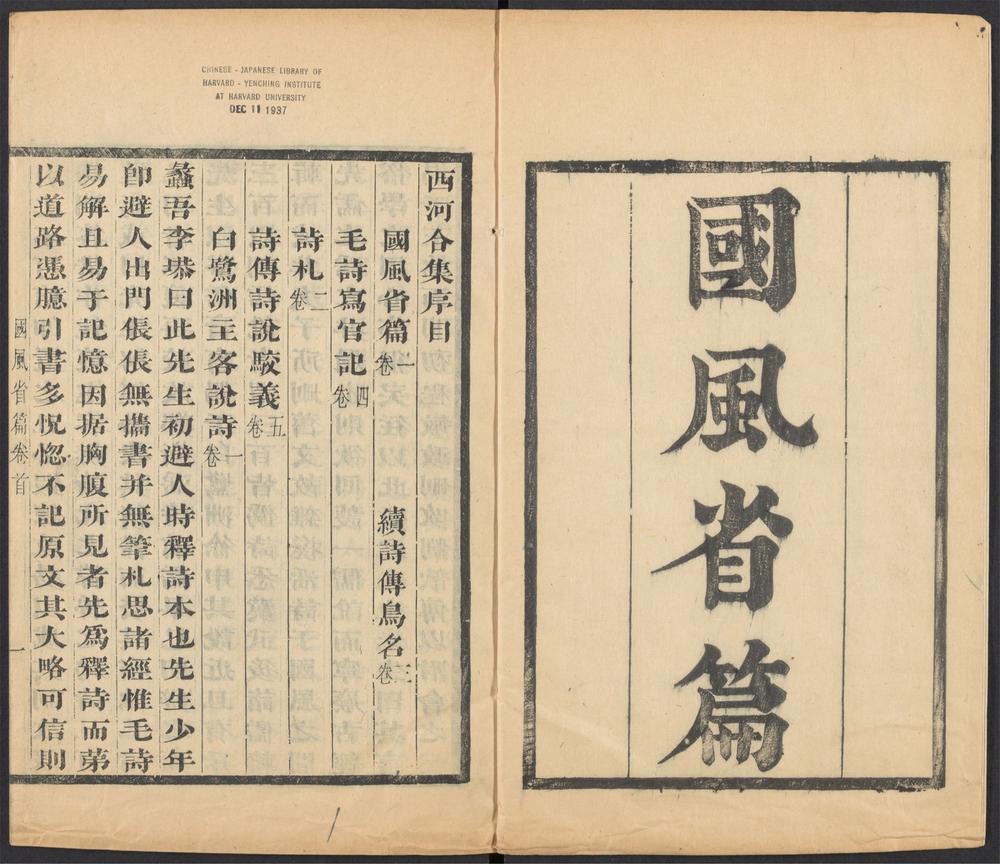 國風省篇
CHINESE - JAPANESE LIBRARY OF
HARVARD - YENCHING INSTITUTE
AT HARVARD UNIVERSITY
DEC 11 1937
西河合集序目
國風省篇一卷 續詩傳鳥名三卷
毛詩寫官記四卷
詩札二卷
詩傳詩說駮義五卷
白鷺洲主客說詩一卷
蠡吾李塨曰此先生初避人時釋詩本也先生少年
卽避人出門倀倀無攜書并無筆札思諸經惟毛詩
易解且易于記憶因据胸腹所見者先爲釋詩而第
以道路憑臆引書多怳惚不記原文其大略可信則
國風省篇卷首
一